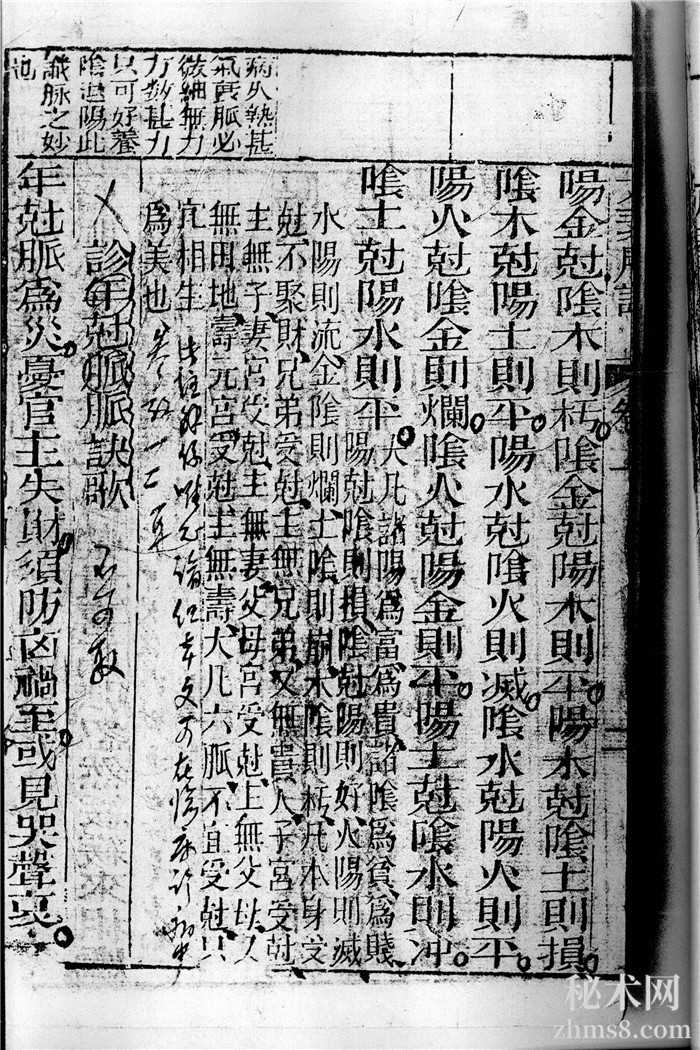 病人熱甚
氣實脈必
微細無力
只可好養
陰退陽此
識脉之妙
也
陽金尅陰木則朽陰金尅陽木則平陽木尅陰土則損
陰木尅陽土則平陽水尅陰火則滅陰水尅陽火則平
陽火尅陰金則爛陰火尅陽金則平陽土尅陰水則沖
陰土尅陽水則平
大凡諸陽爲富爲貴諸陰爲貧爲賤
陽尅陰則損陰尅陽則好火陽則滅
水陽則流金陰則爛土陰則崩木陰則朽凡本身受
尅不聚財兄弟受尅主無兄弟又無貴人子宮受尅
主無子妻宮受尅主無妻父母宮受尅上無父母又
無田地壽元宮受尅主無壽大凡六脈不宜受尅只
宜相生
爲美也
診年尅脈脈訣歌
年尅脈爲災憂官主失財須防凶禍至或見哭聲哀
秘术网
zhms8.com